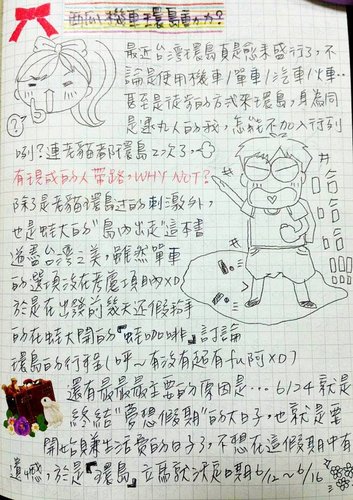 西瓜ㄟ機車環島動力?
最近台灣環島真是愈來愈盛行了,不
論是使用機車/單車/汽車/火車..
甚至是徒步的方式來環島,身為同
是地丸人的我,怎能不加入行列
咧?連老貓都環島2次了,
有現成的人帶路,WHY NOT?
除了是老貓環島過的刺激外,
也是蛙大的"島內出走"這本書
道盡台灣之美,雖然單車
的選項沒在考慮項目內XD
於是在出發前幾天還假掰
的在蛙大開的『蛙咖啡』討論
環島的行程(呼~有沒有超有fu阿XD)
還有最最最主要的原因是... 6/24就是
終結"夢想假期"的大日子,也就是要
開始負擔生活費的日子了,不想在這假期中有
遺憾,於是『環島』立馬就決定日期6/12~6/16